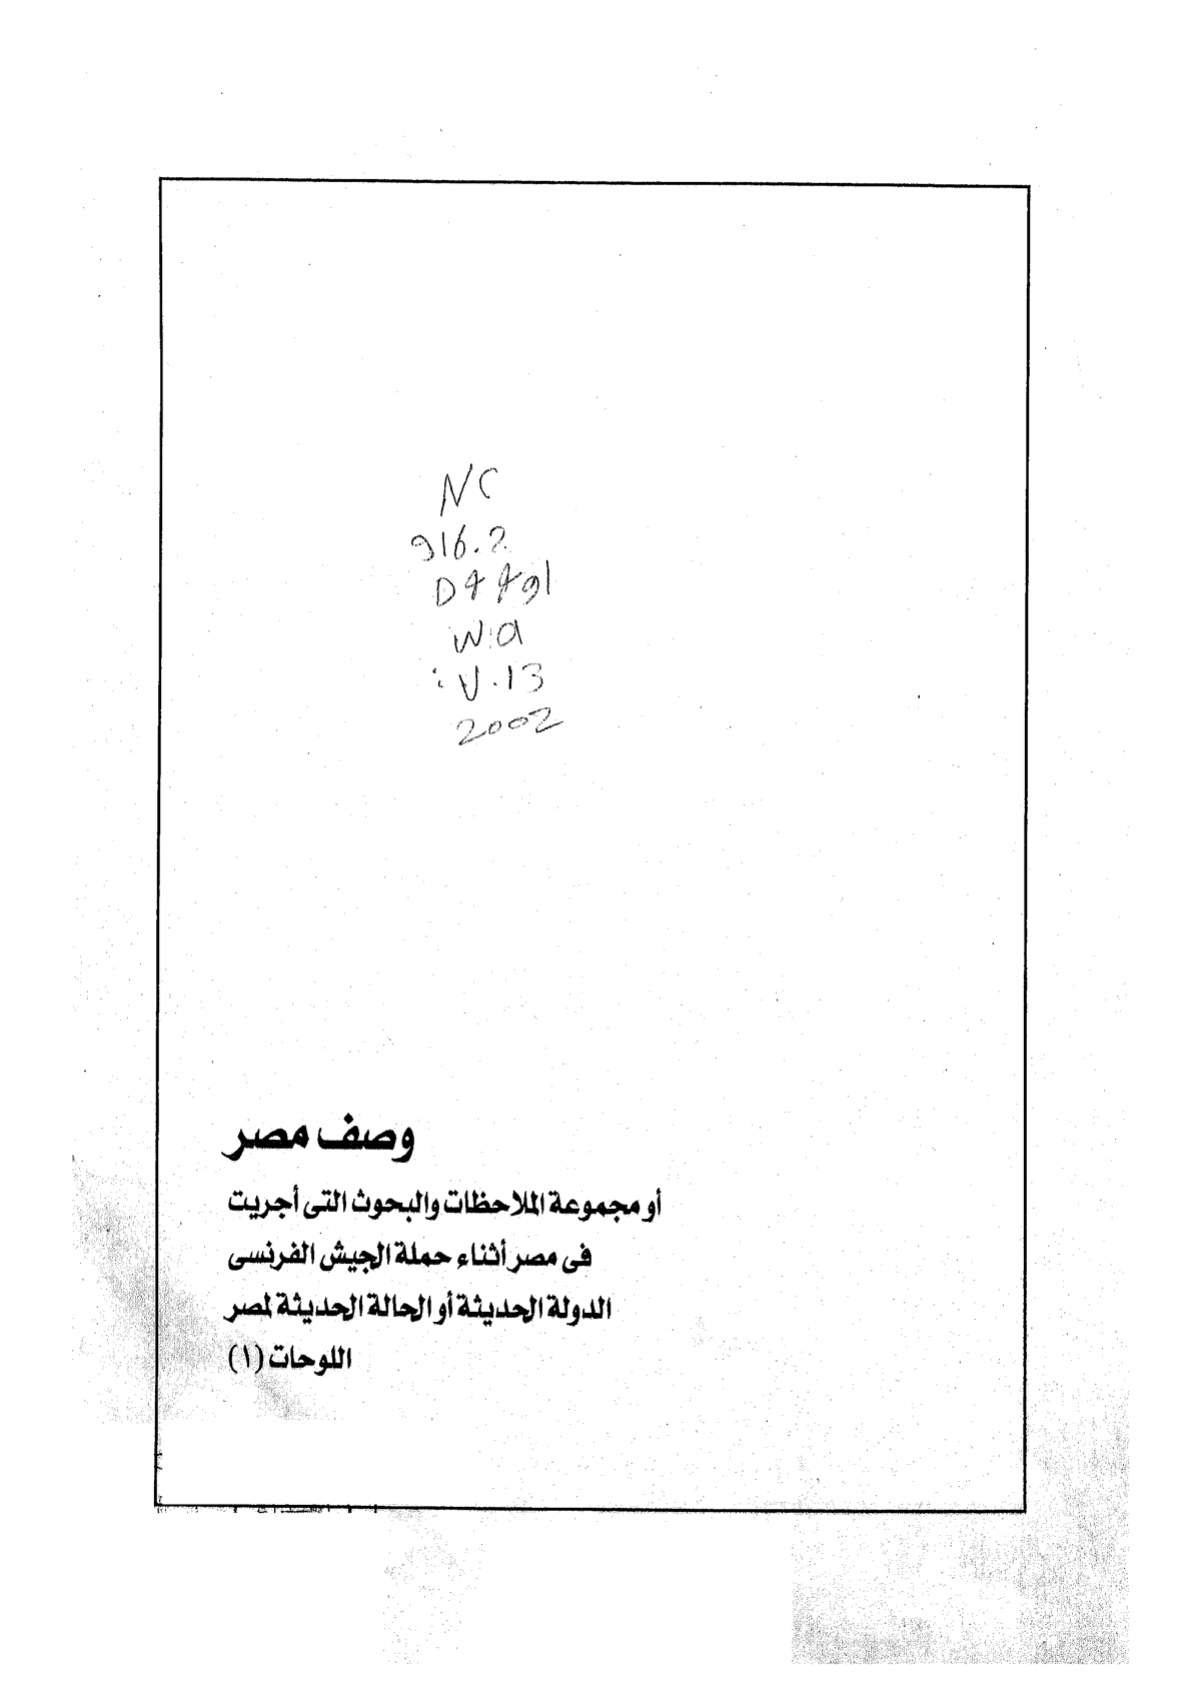 NC
916.2
W.a
V.13
2002
وصف مصر
أو مجموعة الملاحظات والبحوث التى أجريت
فى مصر أثناء حملة الجيش الفرنسى
الدولة الحديثة أو الحالة الحديثة لمصر
اللوحات (١)